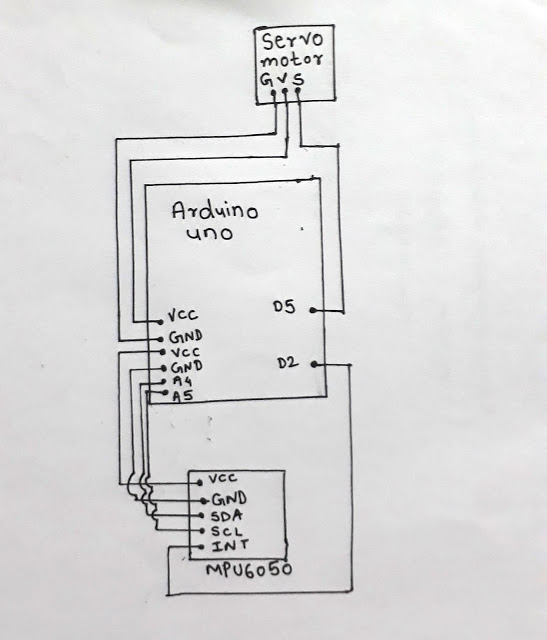 Servo
motor
G V S
Arduino
uno
VCC
GND
VCC
GND
A4
A5
D5
D2
VCC
GND
SDA
SCL
INT
MPU6050